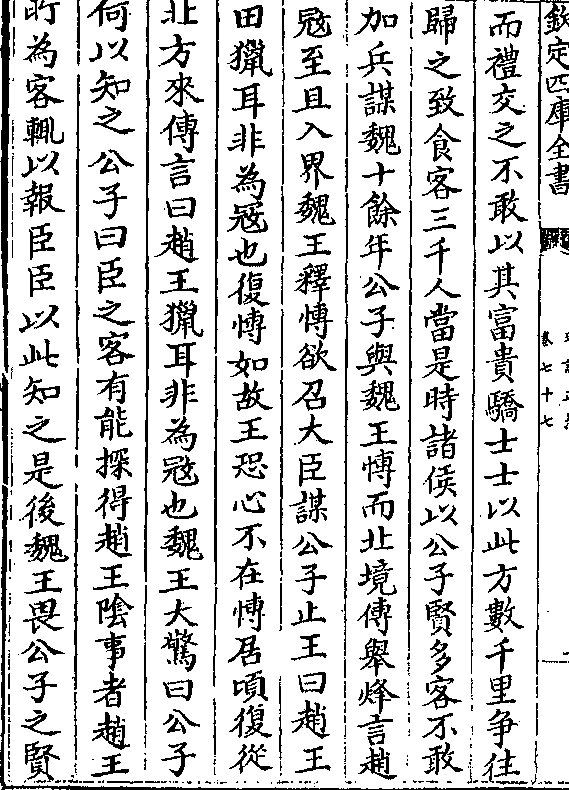 欽定四庫全書
卷七十七
而禮交之不敢以其富貴驕士士以此方數千里争往
歸之致食客三千人當是時諸侯以公子賢多客不敢
加兵謀魏十餘年公子與魏王愽而北境傳舉烽言趙
冦至且入界魏王釋愽欲召大臣謀公子止王曰趙王
田獵耳非為冦也復愽如故王恐心不在愽居頃復從
北方來傳言曰趙王獵耳非為冦也魏王大驚曰公子
何以知之公子曰臣之客有能探得趙王陰事者趙王
所為客輒以報臣臣以此知之是後魏王畏公子之賢